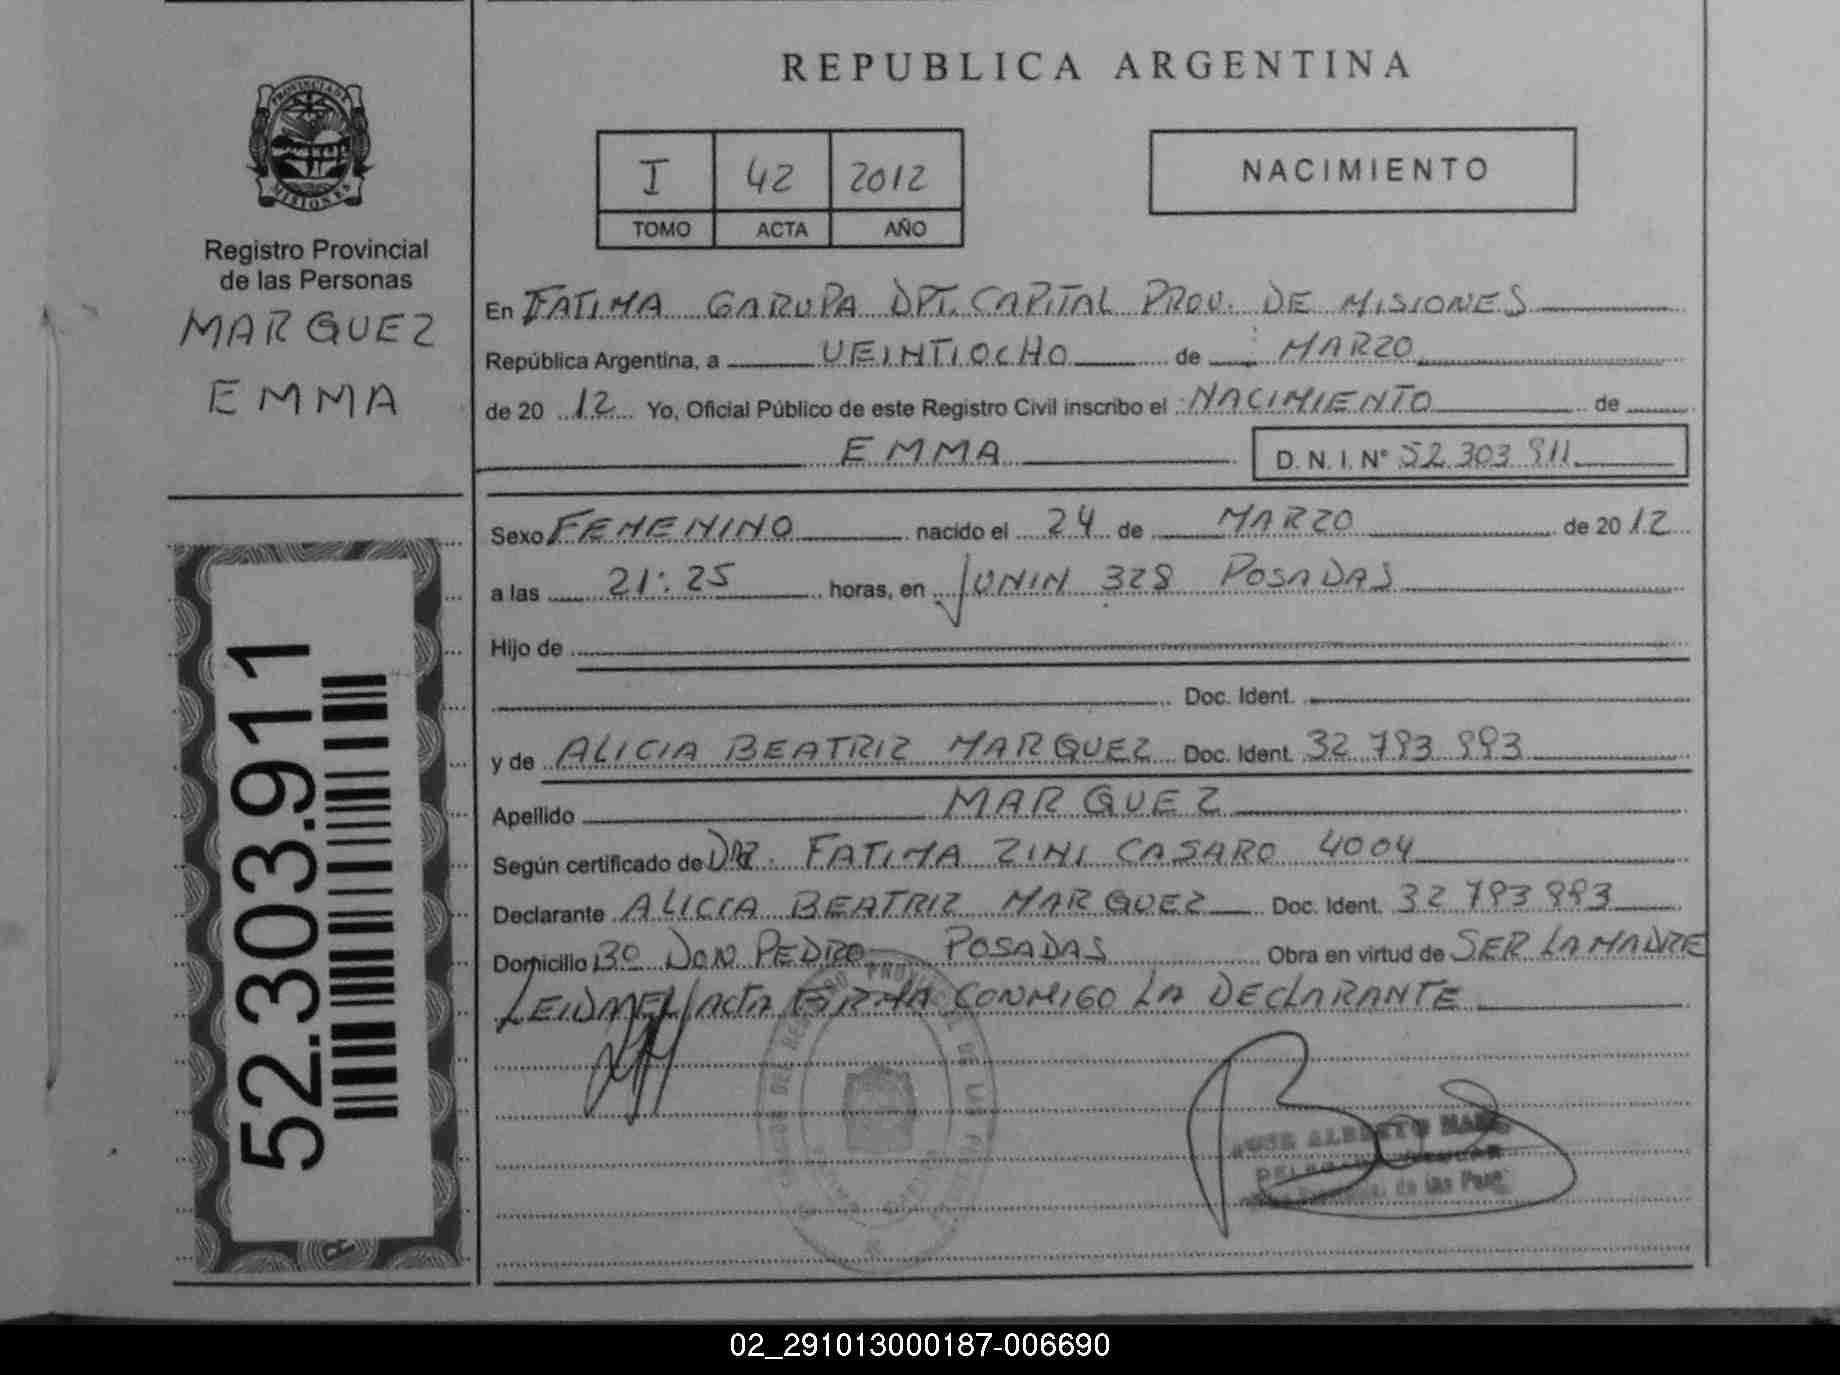 PROVINCIA DE
MISIONES
Registro Provincial
de las Personas
MARQUEZ
EMMA
52.303.911
REPUBLICA ARGENTINA
I 42 2012
TOMO ACTA AÑO
NACIMIENTO
En FATIMA GARUPA DPT. CAPITAL PROV. DE MISIONES
República Argentina, a VEINTIOCHO de MARZO
de 2012 Yo, Oficial Público de este Registro Civil inscribo el NACIMIENTO de
EMMA D.N.I. N° 52 303 911
Sexo FEMENINO nacido el 24 de MARZO de 2012
a las 21:25 horas, en JUNIN 328 POSADAS
Hijo de
Doc. Ident.
y de ALICIA BEATRIZ MARQUEZ Doc. Ident. 32 793 993
Apellido MARQUEZ
Según certificado de DRA. FATIMA ZINI CASARO 4004
Declarante ALICIA BEATRIZ MARQUEZ Doc. Ident. 32 793 993
Domicilio Bº DON PEDRO POSADAS Obra en virtud de SER LA MADRE
LEIDA EL ACTA FIRMA CONMIGO LA DECLARANTE
ALBERTO
de las Pers.
02_291013000187-006690